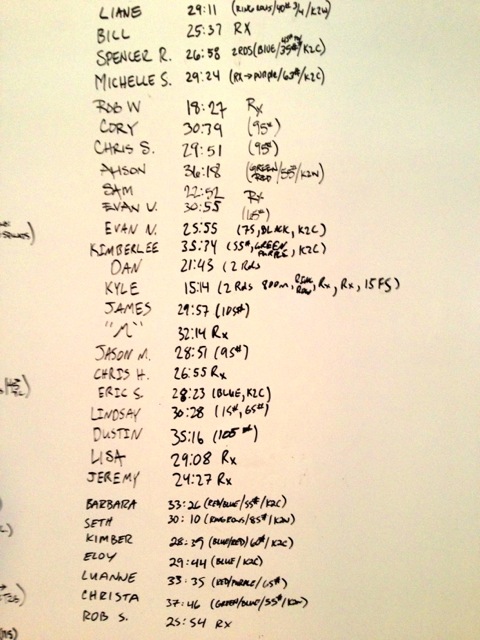 LIANE 29:11 (RING ROWS/40# 3/4/K2W)
BILL 25:37 RX
SPENCER R. 26:58 2RDS (BLUE/35#/K2C)
MICHELLE S. 29:24 (RX→PURPLE/63#/K2C)
ROB W 18:27 Rx
CORY 30:39 (95#)
CHRIS S. 29:51 (95#)
ALISON 36:18 (GREEN/RED/55#/K2W)
SAM 22:52 Rx
EVAN V. 30:55
EVAN N. 25:55 (75, BLACK, K2C)
KIMBERLEE 35:34 (55#, GREEN PURPLE, K2C)
DAN 21:43 (2 Rds
KYLE 15:14 (2 Rds 800m, RING ROW, Rx, Rx, 15FS)
JAMES 29:57 (105#)
"M" 32:14 Rx
JASON M. 28:51 (95#)
CHRIS H. 26:55 Rx
ERIC S. 28:23 (BLUE, K2C)
LINDSAY 30:28 (15#, 65#)
DUSTIN 35:16 (105#)
LISA 29:08 Rx
JEREMY 24:27 Rx
BARBARA 33:26 (RED/BLUE/55#/K2C)
SETH 30:10 (RING ROWS/85#/K2W)
KIMBER 28:39 (BLUE/RED/60#/K2C)
ELOY 29:44 (BLUE/K2C)
LUANNE 33:35 (RED/PURPLE/65#)
CHRISTA 37:46 (GREEN/BLUE/55/K2W)
ROB S. 25:54 RX